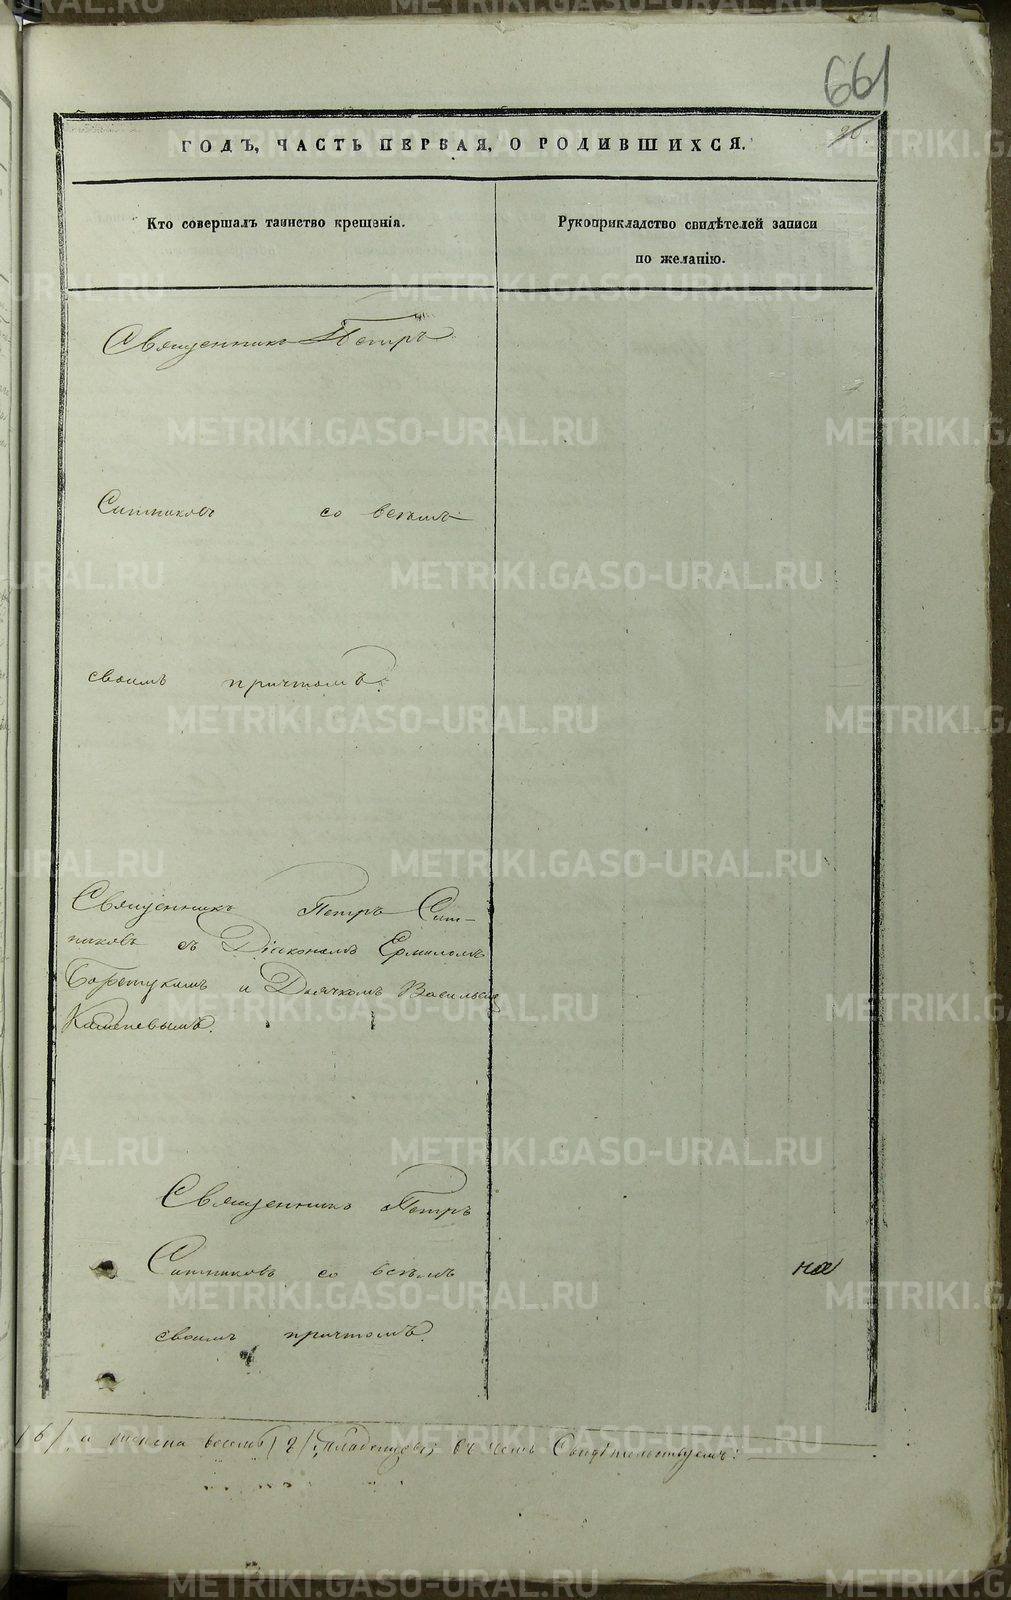 661
ГОДЪ, ЧАСТЬ ПЕРВАЯ, О РОДИВШИХСЯ.
Кто совершалъ таинство крещенія.
Рукоприкладство свидѣтелей записи
по желанію.
Священникъ Петръ
Ситниковъ со всѣмъ
своимъ причтомъ.
Священникъ Петръ Сит-
никовъ съ Діакономъ Ермиломъ
и Дьячкомъ Васильем
Каменевымъ.
Священникъ Петръ
Ситниковъ со всѣмъ
своимъ причтомъ.
на
6/ и женска восемь /8/ младенцовъ, въ чемъ Свидѣтельствуемъ:
METRIKI.GASO-URAL.RU